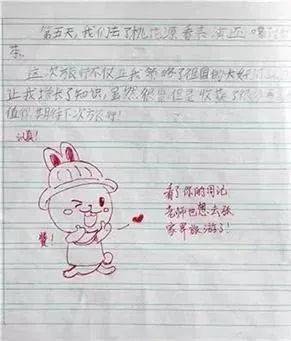 第五天,我们去了桃花源
这次旅行不仅让我领略了祖国的大好
让我增长了知识,虽然很累但是收获了
值得期待下次旅行!
认真!
赞!
看了你的日记
老师也想去张
家界旅游了!